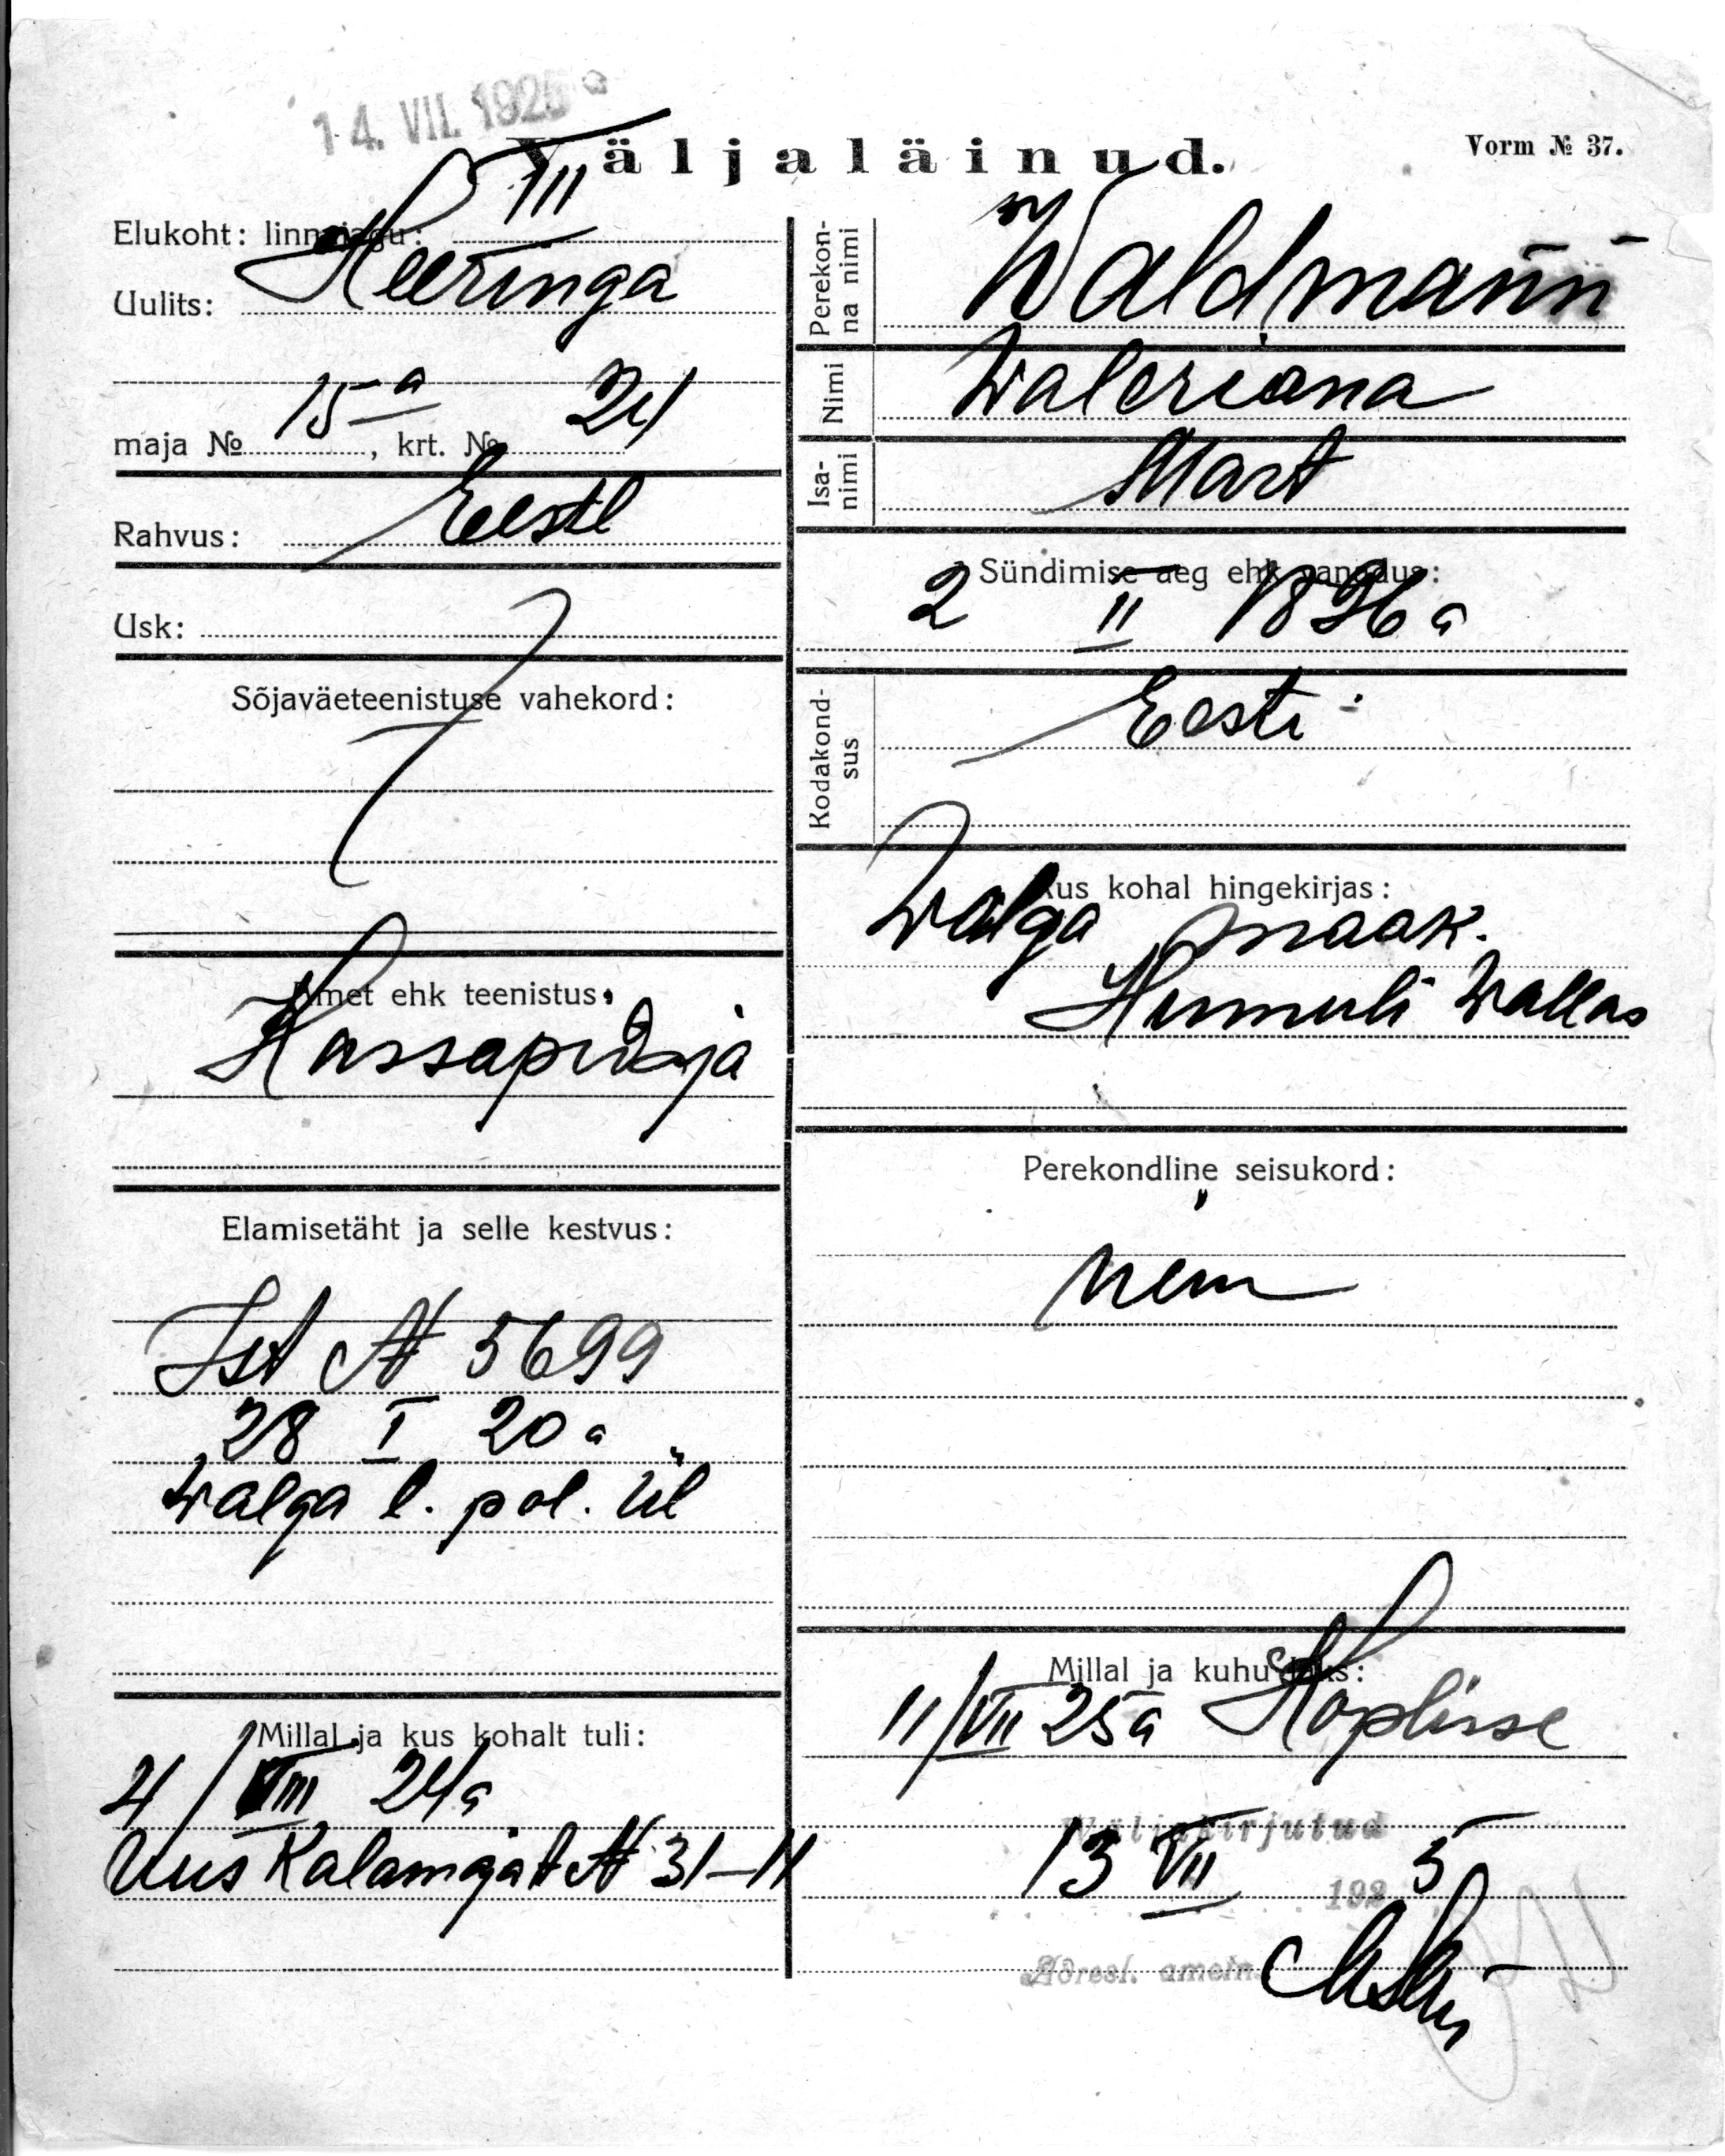 14. VII. 1925
Väljaläinud.
Vorm № 37.
Elukoht: linnajagu: VIII
Uulits: Heeringa
maja № 15 a, krt. № 24
Rahvus: Eesti
Usk:
Sõjaväeteenistuse vahekord:
Amet ehk teenistus:
Kassapidaja
Elamisetäht ja selle kestvus:
Ist № 5699
28 I 20 a
Walga l. pol. ül
Millal ja kus kohalt tuli:
4/VIII 24 a
Uus Kalamaja t № 31-11
Perekonna nimi
Waldmann
Nimi
Waleriana
Isanimi
Mart
Sündimise aeg ehk vanadus:
2 II 1896 a
Kodakondsus
Eesti
Kus kohal hingekirjas:
Walga maak.
Hummuli wallas
Perekondline seisukord:
Millal ja kuhu läks:
11/VII 25 a Koplisse
Väljakirjutud
13 VII 1925
Adresl. ametn.